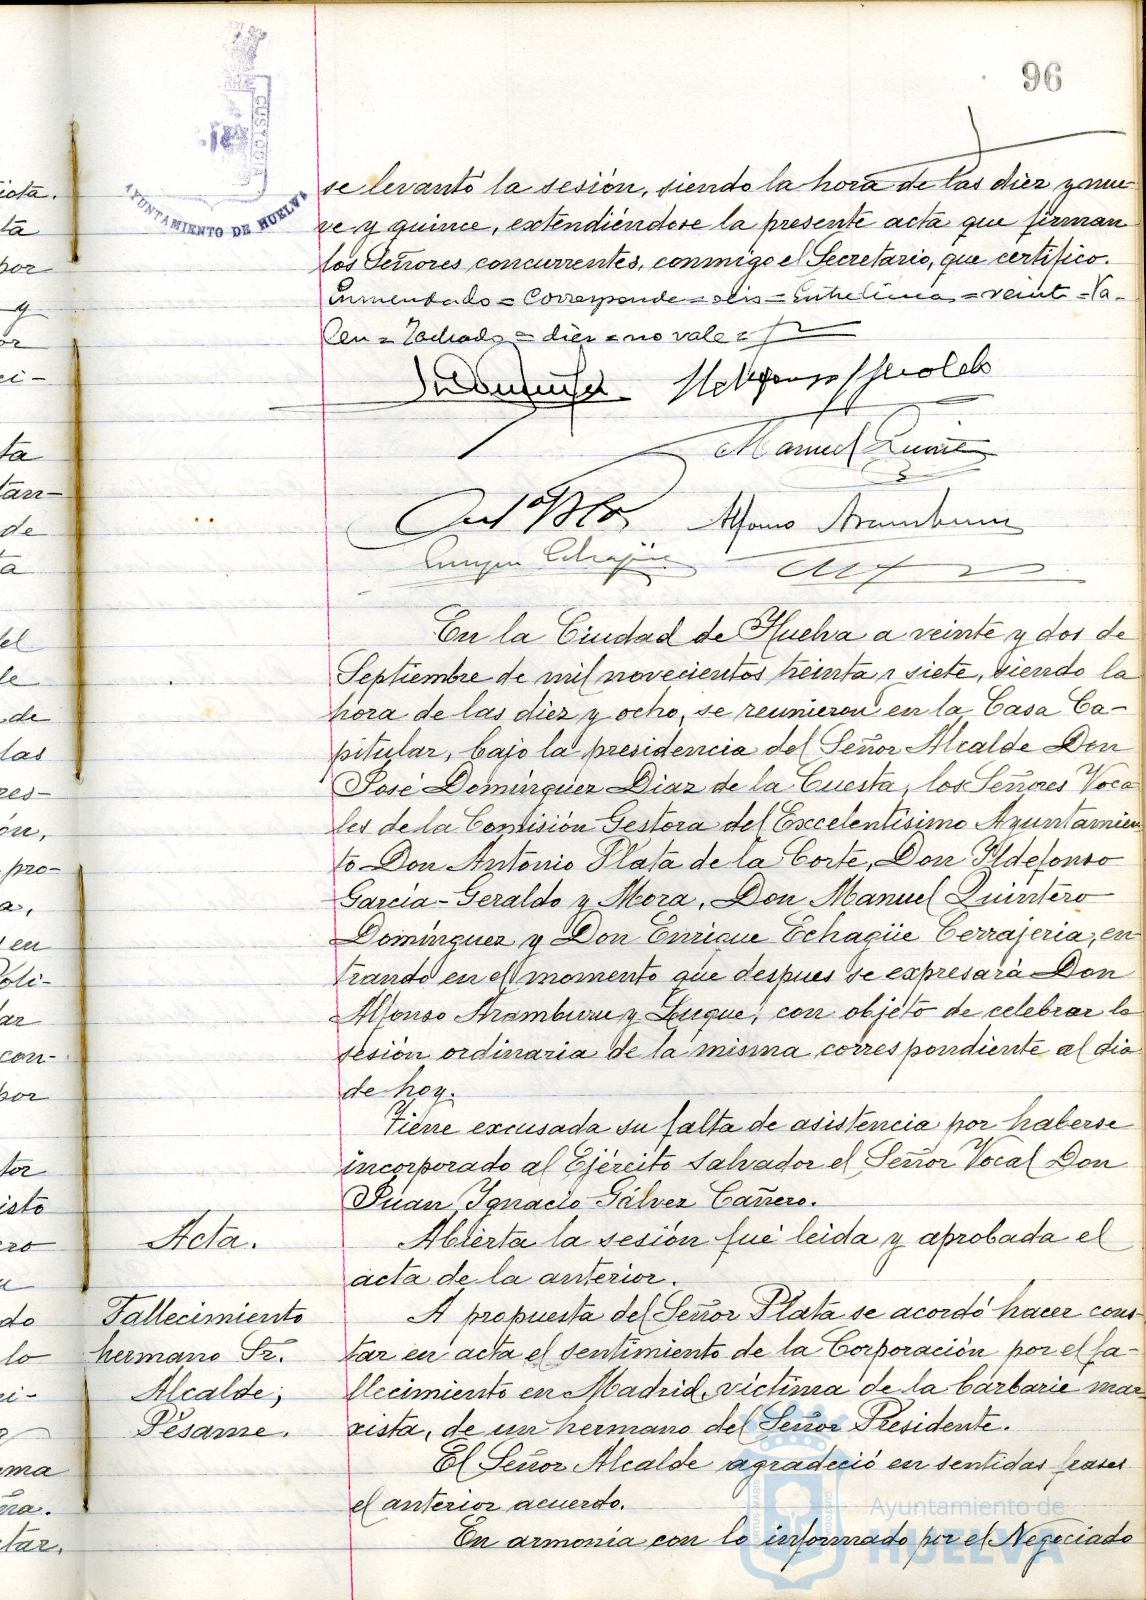 96
AYUNTAMIENTO DE HUELVA
se levantó la sesión, siendo la hora de las diez y nue-
ve y quince, extendiéndose la presente acta que firman
los Señores concurrentes, conmigo el Secretario, que certifico.
Enmendado = Corresponde = seis = Entrelíneas = veinte = Va-
len = Tachado = diez = no vale =
Ildefonso G Geraldo
Manuel Quintero
Antº Plata
Alfonso Aramburu
Enrique Echagüe
En la Ciudad de Huelva a veinte y dos de
Septiembre de mil novecientos treinta y siete, siendo la
hora de las diez y ocho, se reunieron en la Casa Ca-
pitular, bajo la presidencia del Señor Alcalde Don
José Domínguez Diaz de la Cuesta, los Señores Voca
les de la Comisión Gestora del Excelentísimo Ayuntamien
to Don Antonio Plata de la Corte, Don Ildefonso
García-Geraldo y Mora, Don Manuel Quintero
Domínguez y Don Enrique Echagüe Cerrajeria, en
trando en el momento que despues se expresará Don
Alfonso Aramburu y Luque, con objeto de celebrar la
sesión ordinaria de la misma correspondiente al dia
de hoy.
Tiene excusada su falta de asistencia por haberse
incorporado al Ejército Salvador el Señor Vocal Don
Juan Ignacio Gálvez Cañero.
Acta.
Abierta la sesión fué leida y aprobada el
acta de la anterior.
Fallecimiento
hermano Sr.
Alcalde;
Pésame.
A propuesta del Señor Plata se acordó hacer cons-
tar en acta el sentimiento de la Corporación por el fa-
llecimiento en Madrid, víctima de la barbarie mar-
xista, de un hermano del Señor Presidente.
El Señor Alcalde agradeció en sentidas frases
el anterior acuerdo.
En armonía con lo informado por el Negociado
Ayuntamiento de
HUELVA